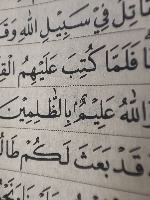 قَاتِلَ فِيْ سَبِيْلِ اللّٰهِ وَقَ
فَلَمَّا كُتِبَ عَلَيْهِمُ الْقِ
وَاللّٰهُ عَلِيْمٌۢ بِالظّٰلِمِيْنَ
قَدْ بَعَثَ لَكُمْ طَالُ